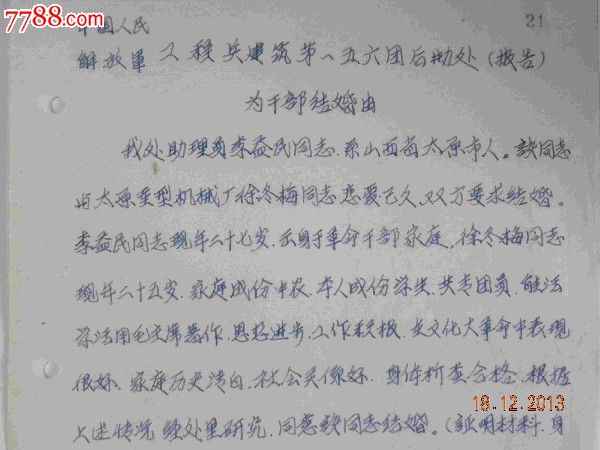 7788.com
21
中国人民
解放军工程兵建筑第一五六团后勤处(报告)
为干部结婚由
我处助理员李益民同志，系山西省太原市人。该同志
与太原重型机械厂徐冬梅同志恋爱已久，双方要求结婚。
李益民同志现年二十七岁，出身于革命干部家庭，徐冬梅同志
现年二十五岁，家庭成份中农，本人成份学生，共青团员，能活
学活用毛主席著作，思想进步，工作积极，文化大革命中表现
很好，家庭历史清白，社会关系好，身体检查合格，根据
上述情况 经处里研究，同意该同志结婚。(证明材料、身
18.12.2013